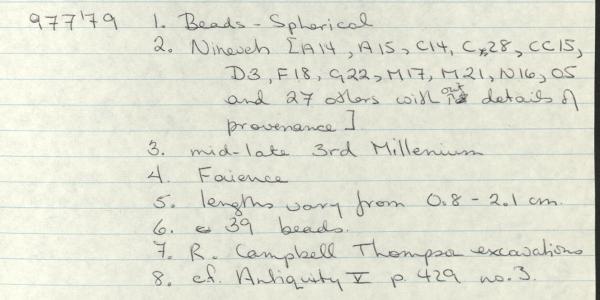 977'79 1. Beads - Spherical
2. Nineveh [A14, A15, C14, C,28, CC15,
D3, F18, G22, M17, M21, N16, O5
and 27 others without details of
provenance]
3. mid-late 3rd Millenium
4. Faience
5. lengths vary from 0.8 - 2.1 cm.
6. 39 beads.
7. R. Campbell Thompson excavations
8. cf. Antiquity V p. 429 no. 3.